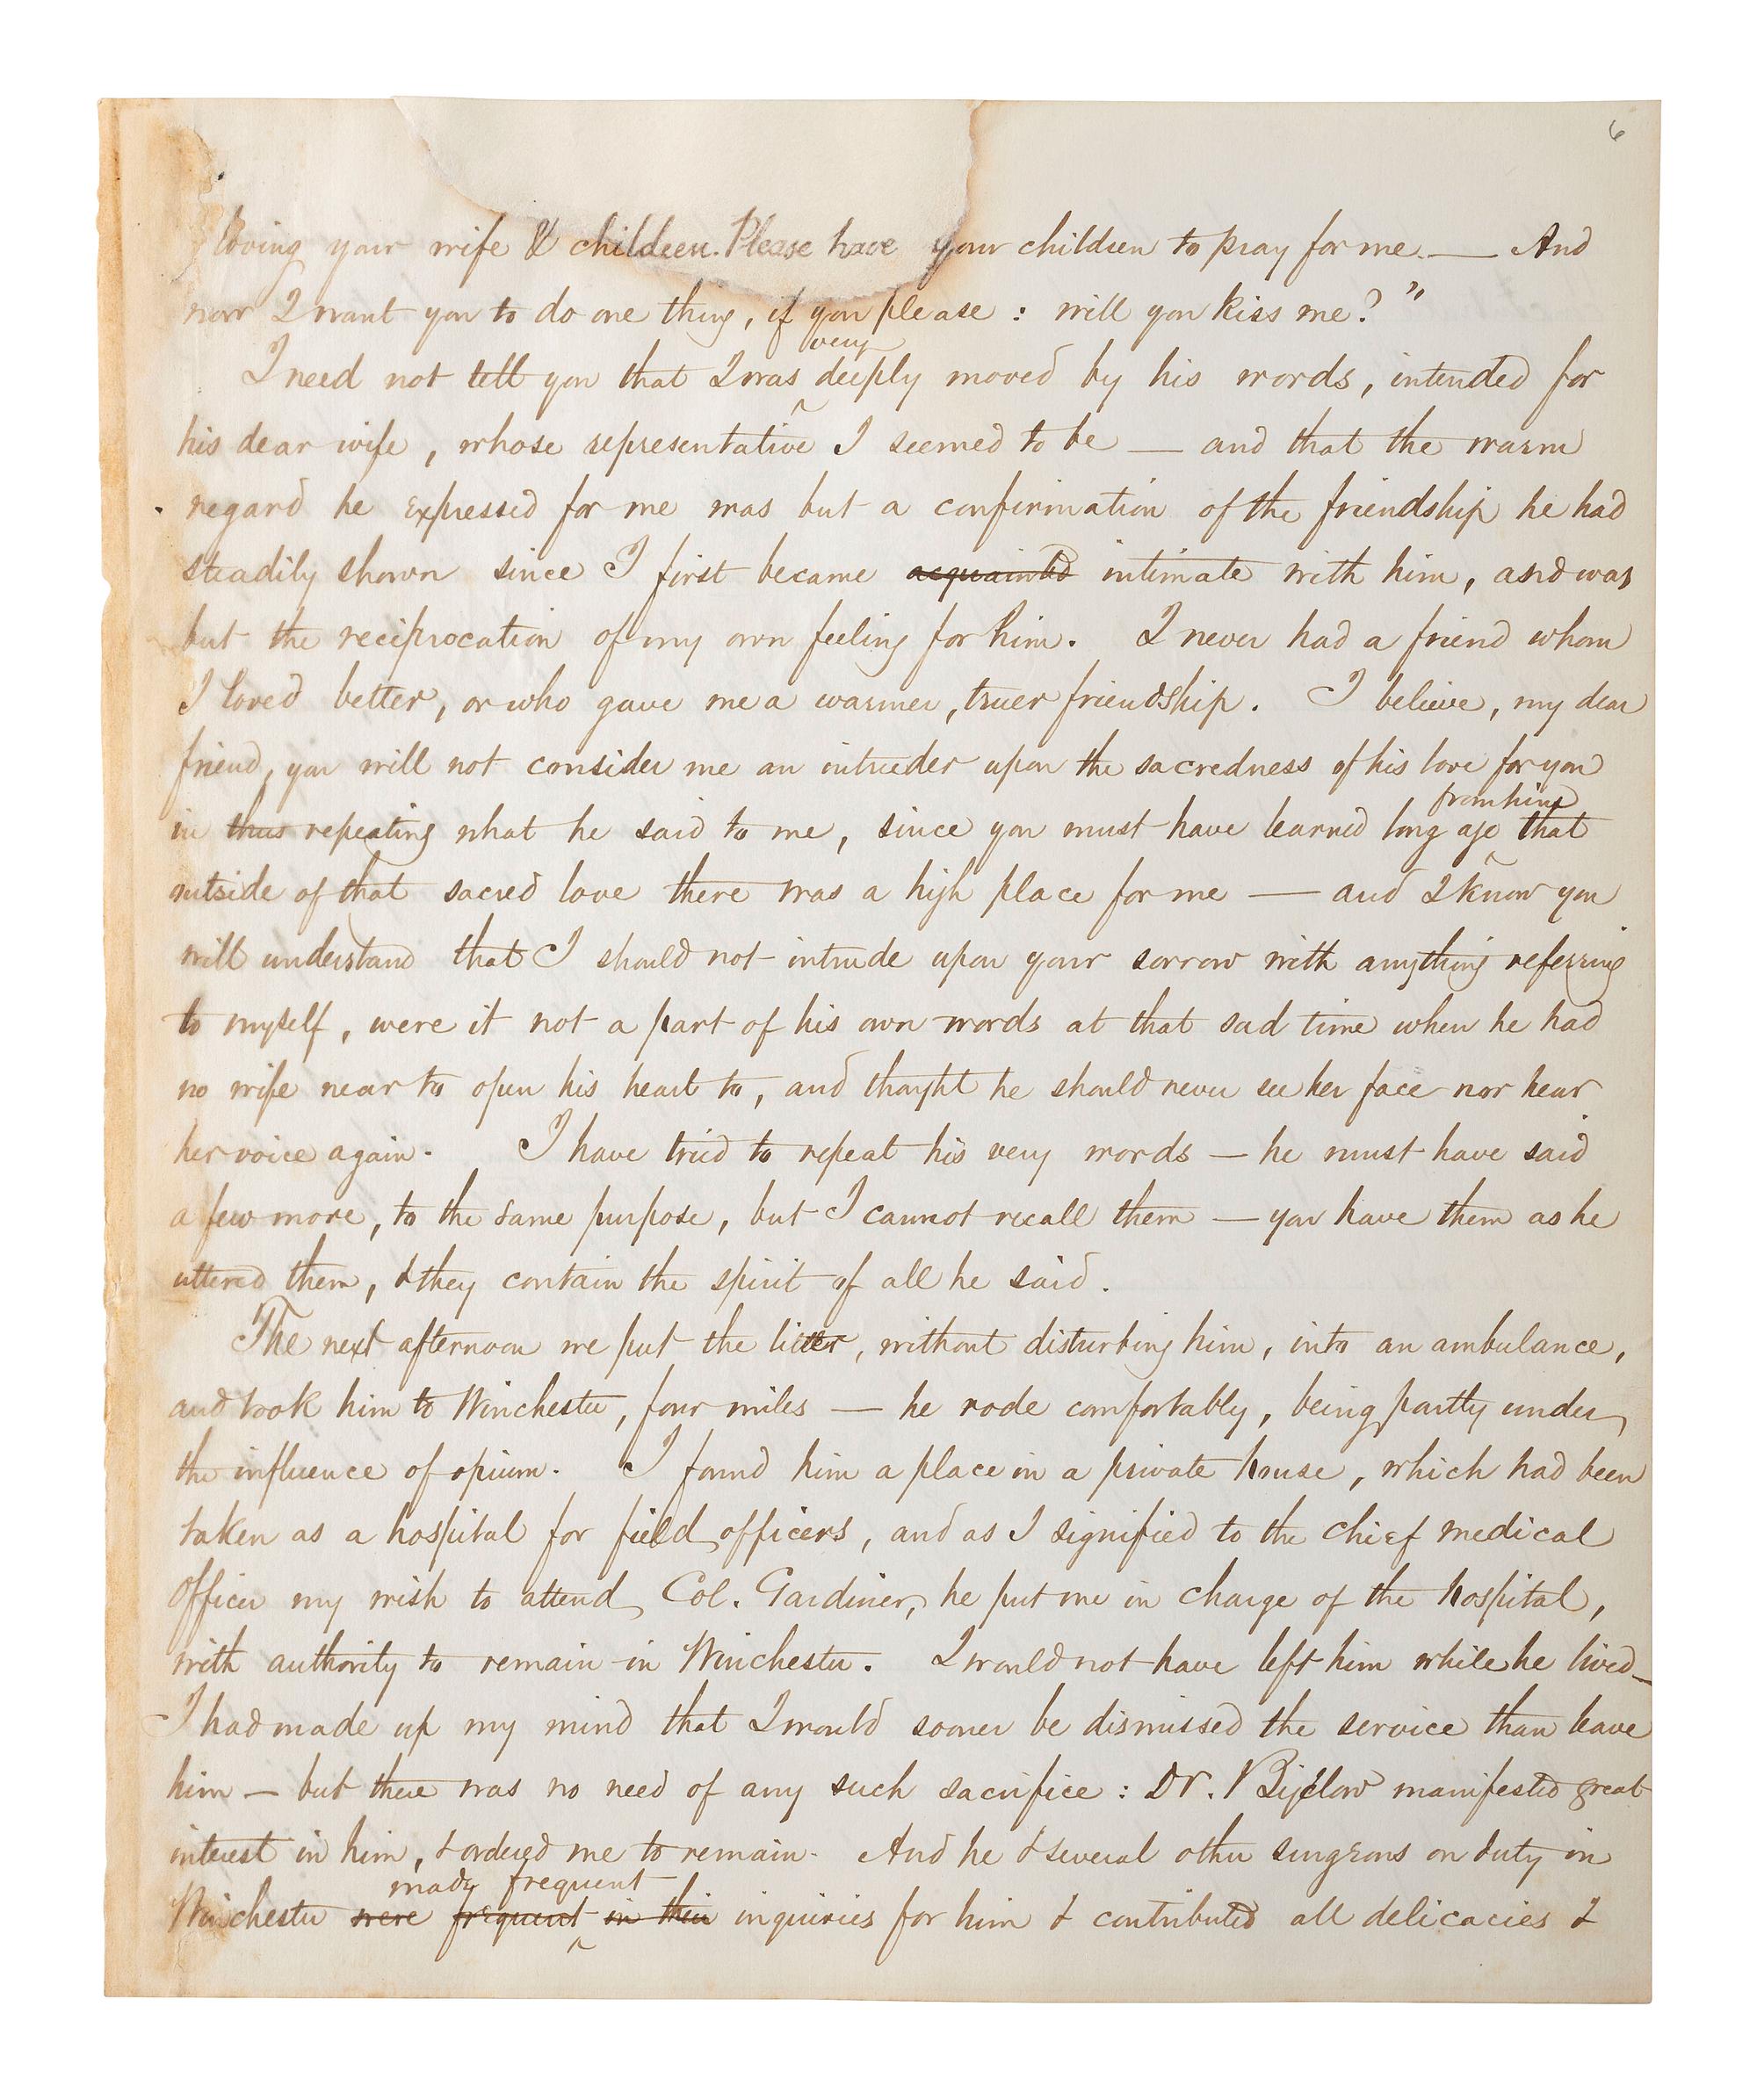 6
loving your wife & children. Please have your children to pray for me. — And
now I want you to do one thing, if you please : will you kiss me? "
very
I need not tell you that I was deeply moved by his words, intended for
his dear wife, whose representative I seemed to be — and that the warm
regard he expressed for me was but a confirmation of the friendship he had
steadily shown since I first became acquainted intimate with him, and was
but the reciprocation of my own feeling for him. I never had a friend whom
I loved better, or who gave me a warmer, truer friendship. I believe, my dear
friend, you will not consider me an intruder upon the sacredness of his love for you
from him
in thus repeating what he said to me, since you must have learned long ago that
outside of that sacred love there was a high place for me — and I know you
will understand that I should not intrude upon your sorrow with anything referring
to myself, were it not a part of his own words at that sad time when he had
no wife near to open his heart to, and thought he should never see her face nor hear
her voice again. I have tried to repeat his very words — he must have said
a few more, to the same purpose, but I cannot recall them — you have them as he
uttered them, & they contain the spirit of all he said.
The next afternoon we put the litter, without disturbing him, into an ambulance,
and took him to Winchester, four miles — he rode comfortably, being partly under
the influence of opium. I found him a place in a private house, which had been
taken as a hospital for field officers, and as I signified to the chief medical
officer my wish to attend Col. Gardiner, he put me in charge of the hospital,
with authority to remain in Winchester. I would not have left him while he lived —
I had made up my mind that I would sooner be dismissed the service than leave
him — but there was no need of any such sacrifice : Dr. Bigelow manifested great
interest in him, & ordered me to remain. And he & several other surgeons on duty in
made frequent
Winchester were frequent in their inquiries for him & contributed all delicacies &